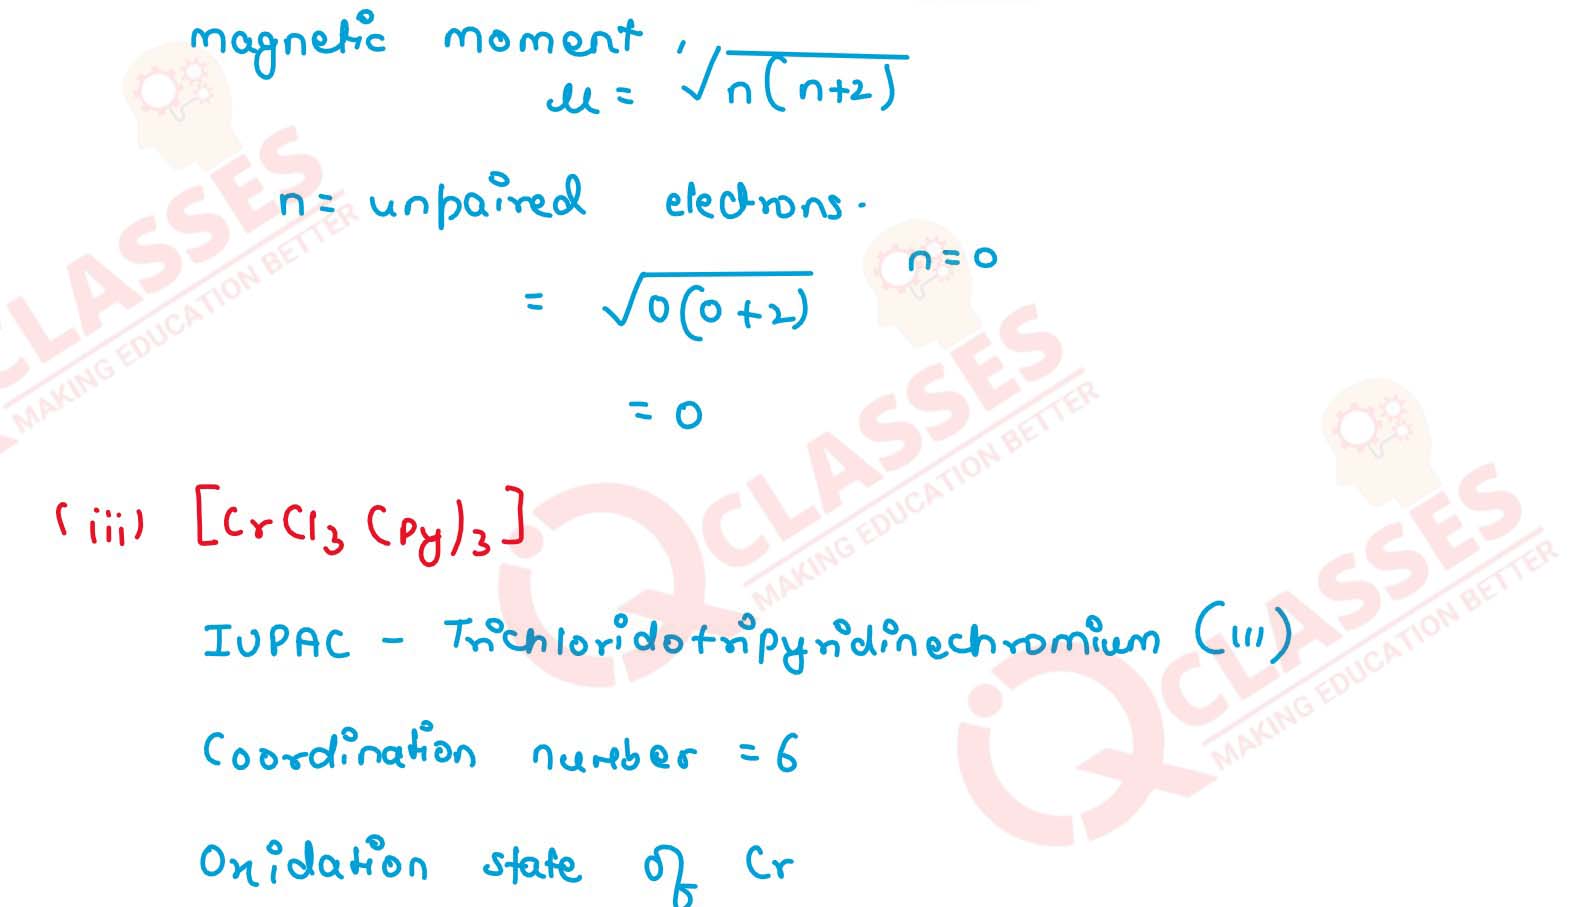 magnetic moment,
μ = √n(n+2)
n = unpaired electrons.
n = 0
= √0(0+2)
= 0
(iii) [CrCl₃(Py)₃]
IUPAC - Trichloridotripyridinechromium (III)
Coordination number = 6
Oxidation state of Cr
CLASSES
MAKING EDUCATION BETTER
iQ CLASSES
MAKING EDUCATION BETTER
iQ CLASSES
MAKING EDUCATION BETTER